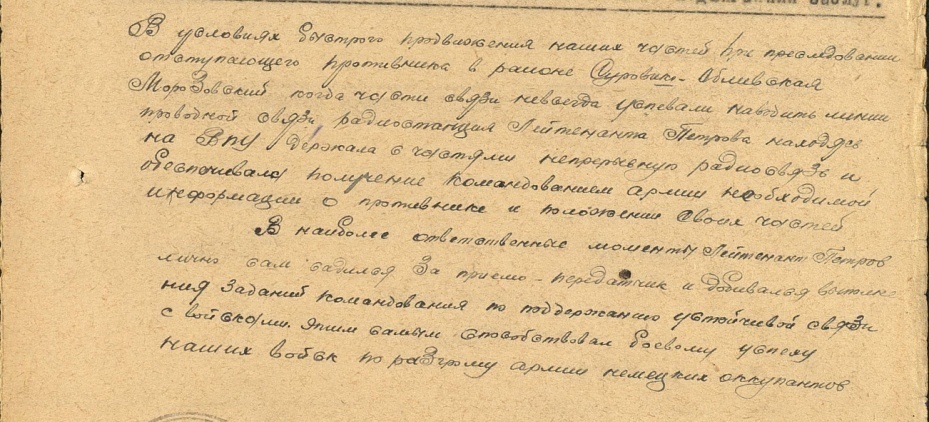 заслуг.
В условиях быстрого продвижения наших частей при преследовании
отступающего противника в районе Суровик - Обливская
Морозовский когда части связи невсегда успевали наводить линии
проводной связи радиостанция Лейтенанта Петрова находясь
на ВПУ держала с частями непрерывную радиосвязь и
обеспечивала получение командованием армии необходимой
информации о противнике и положении своих частей
В наиболее ответственные моменты Лейтенант Петров
лично сам садился за приемо-передатчик и добивался выполне
ния заданий командования по поддержанию устойчивой связи
с войсками. Этим самым способствовал боевому успеху
наших войск по разгрому армии немецких оккупантов